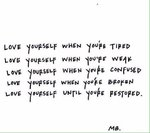 LOVE YOURSELF WHEN YOU'RE TIRED
LOVE YOURSELF WHEN YOU'RE WEAK
LOVE YOURSELF WHEN YOU'RE CONFUSED
LOVE YOURSELF WHEN YOU'RE BROKEN
LOVE YOURSELF UNTIL YOU'RE RESTORED.
MB.